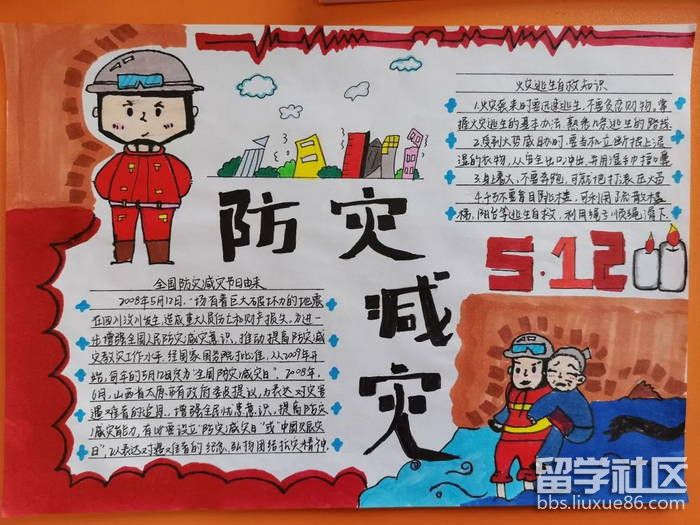 防灾
减灾
全国防灾减灾节日由来
2008年5月12日,一场有着巨大破坏力的地震
在四川汶川发生,造成重大人员伤亡和财产损失,为进一
步增强全国人民防灾减灾意识,推动提高防灾减
灾救灾工作水平,经国家国务院批准,从2009年开
始,每年的5月12日定为"全国防灾减灾日"。2008年,
6月,山西省太原市有政府委员提议,为表达对灾害
遇难者的追月,增强全民忧患意识,提高防灾
减灾能力,有必要设立"防灾减灾日"或"中国
日",以表达对遇难者的纪念,弘扬团结抗灾精神.
火灾逃生自救知识
1.火灾袭来时要迅速逃生,不要贪恋财物,掌
握火灾逃生的基本办法,熟悉几条逃生的路线.
2.受到火势威胁时,要当机立断披上浸
湿的衣物,从安全出口冲出,并用湿毛巾捂口鼻
3.身上着火,不要奔跑,可就地打滚压火苗
4.千万不要盲目跳楼,可利用疏散楼
梯,阳台等逃生自救,利用绳子顺绳滑下
5.12
留学社区
bbs.liuxue86.com